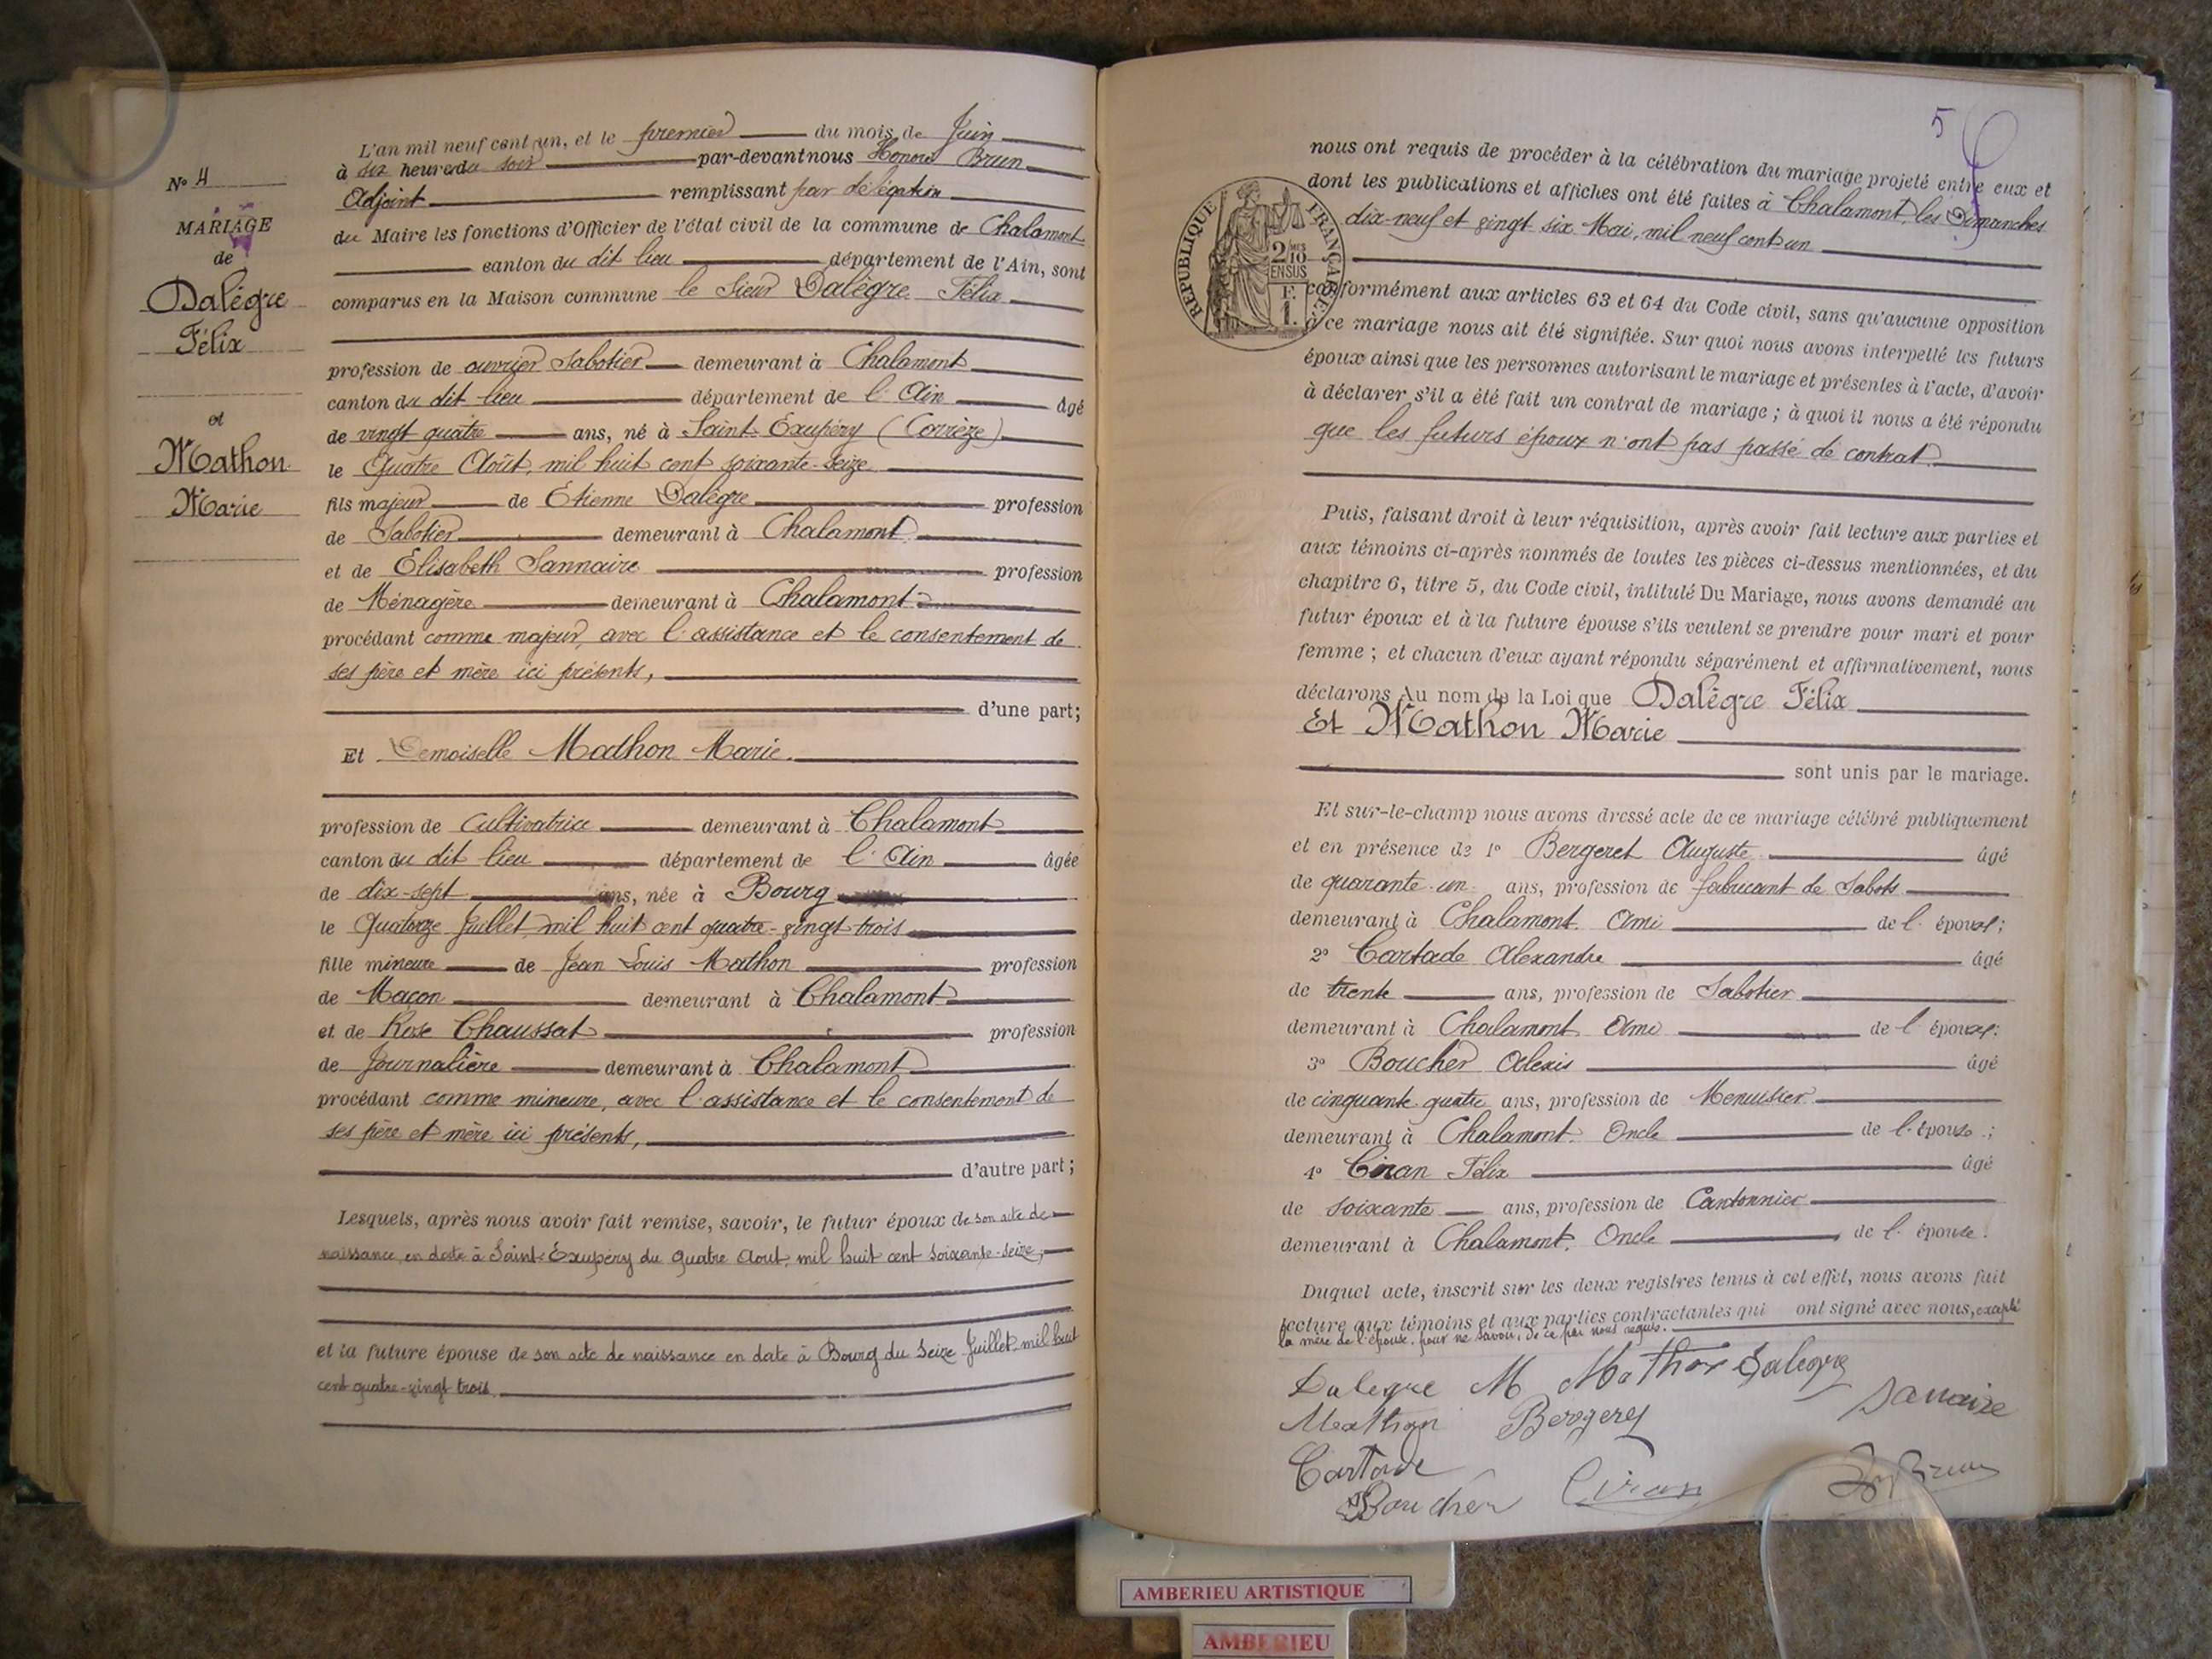 N° 4
MARIAGE
de
Dalègre
Félix
et
Mathon
Marie
L'an mil neuf cent un, et le premier du mois de Juin
à six heures du soir par-devant nous Honoré Brun
Adjoint remplissant par délégation
du Maire les fonctions d'Officier de l'état civil de la commune de Chalamont
canton du dit lieu département de l'Ain, sont
comparus en la Maison commune le Sieur Dalègre Félix
profession de ouvrier Sabotier demeurant à Chalamont
canton du dit lieu département de l'Ain âgé
de vingt quatre ans, né à Saint-Exupéry (Corrèze)
le Quatre Août, mil huit cent soixante-seize
fils majeur de Etienne Dalègre profession
de Sabotier demeurant à Chalamont
et de Elisabeth Sannaire profession
de Ménagère demeurant à Chalamont
procédant comme majeur, avec l'assistance et le consentement de
ses père et mère ici présents,
d'une part;
Et Demoiselle Mathon Marie.
profession de Cultivatrice demeurant à Chalamont
canton du dit lieu département de l'Ain âgée
de dix-sept ans, née à Bourg
le Quatorze Juillet mil huit cent quatre-vingt-trois
fille mineure de Jean Louis Mathon profession
de Maçon demeurant à Chalamont
et de Rose Chaussat profession
de Journalière demeurant à Chalamont
procédant comme mineure, avec l'assistance et le consentement de
ses père et mère ici présents,
d'autre part;
Lesquels, après nous avoir fait remise, savoir, le futur époux de son acte de
naissance en date à Saint-Exupéry du quatre Aout, mil huit cent soixante-seize,
et la future épouse de son acte de naissance en date à Bourg du Seize Juillet mil huit
cent quatre-vingt trois
5
RÉPUBLIQUE FRANÇAISE
2/10 MES
EN SUS
F.
1.
nous ont requis de procéder à la célébration du mariage projeté entre eux et
dont les publications et affiches ont été faites à Chalamont, les Dimanches
dix-neuf et vingt six Mai, mil neuf cent un
conformément aux articles 63 et 64 du Code civil, sans qu'aucune opposition
à ce mariage nous ait été signifiée. Sur quoi nous avons interpellé les futurs
époux ainsi que les personnes autorisant le mariage et présentes à l'acte, d'avoir
à déclarer s'il a été fait un contrat de mariage ; à quoi il nous a été répondu
que les futurs époux n'ont pas passé de contrat.
Puis, faisant droit à leur réquisition, après avoir fait lecture aux parties et
aux témoins ci-après nommés de toutes les pièces ci-dessus mentionnées, et du
chapitre 6, titre 5, du Code civil, intitulé Du Mariage, nous avons demandé au
futur époux et à la future épouse s'ils veulent se prendre pour mari et pour
femme ; et chacun d'eux ayant répondu séparément et affirmativement, nous
déclarons Au nom de la Loi que Dalègre Félix
Et Mathon Marie
sont unis par le mariage.
Et sur-le-champ nous avons dressé acte de ce mariage célébré publiquement
et en présence de 1° Bergeret Auguste âgé
de quarante-un ans, profession de fabricant de Sabots
demeurant à Chalamont. Ami de l'époux;
2° Cartade Alexandre âgé
de trente ans, profession de Sabotier
demeurant à Chalamont Ami de l'époux;
3° Boucher Alexis âgé
de cinquante-quatre ans, profession de Menuisier
demeurant à Chalamont. Oncle de l'épouse.;
4° Ciran Félix âgé
de soixante ans, profession de Cantonnier
demeurant à Chalamont. Oncle de l'épouse.
Duquel acte, inscrit sur les deux registres tenus à cet effet, nous avons fait
lecture aux témoins et aux parties contractantes qui ont signé avec nous, excepté
la mère de l'épouse, pour ne savoir, de ce par nous requis.
Dalegre M Mathon Dalegre
Sanaire
Mathon Bergeret
Cartade
Boucher Ciran Brun
AMBERIEU ARTISTIQUE
AMBERIEU